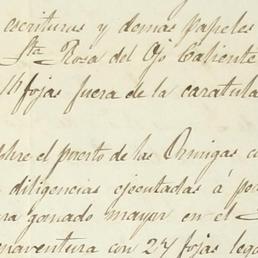 escrituras y demas papeles
Sta Rosa del Ojo Caliente
16 fojas fuera de la caratula
sobre el puesto de las Ormigas
diligencias ejecutadas á
ganado mayor en el
enaventura con 27 fojas